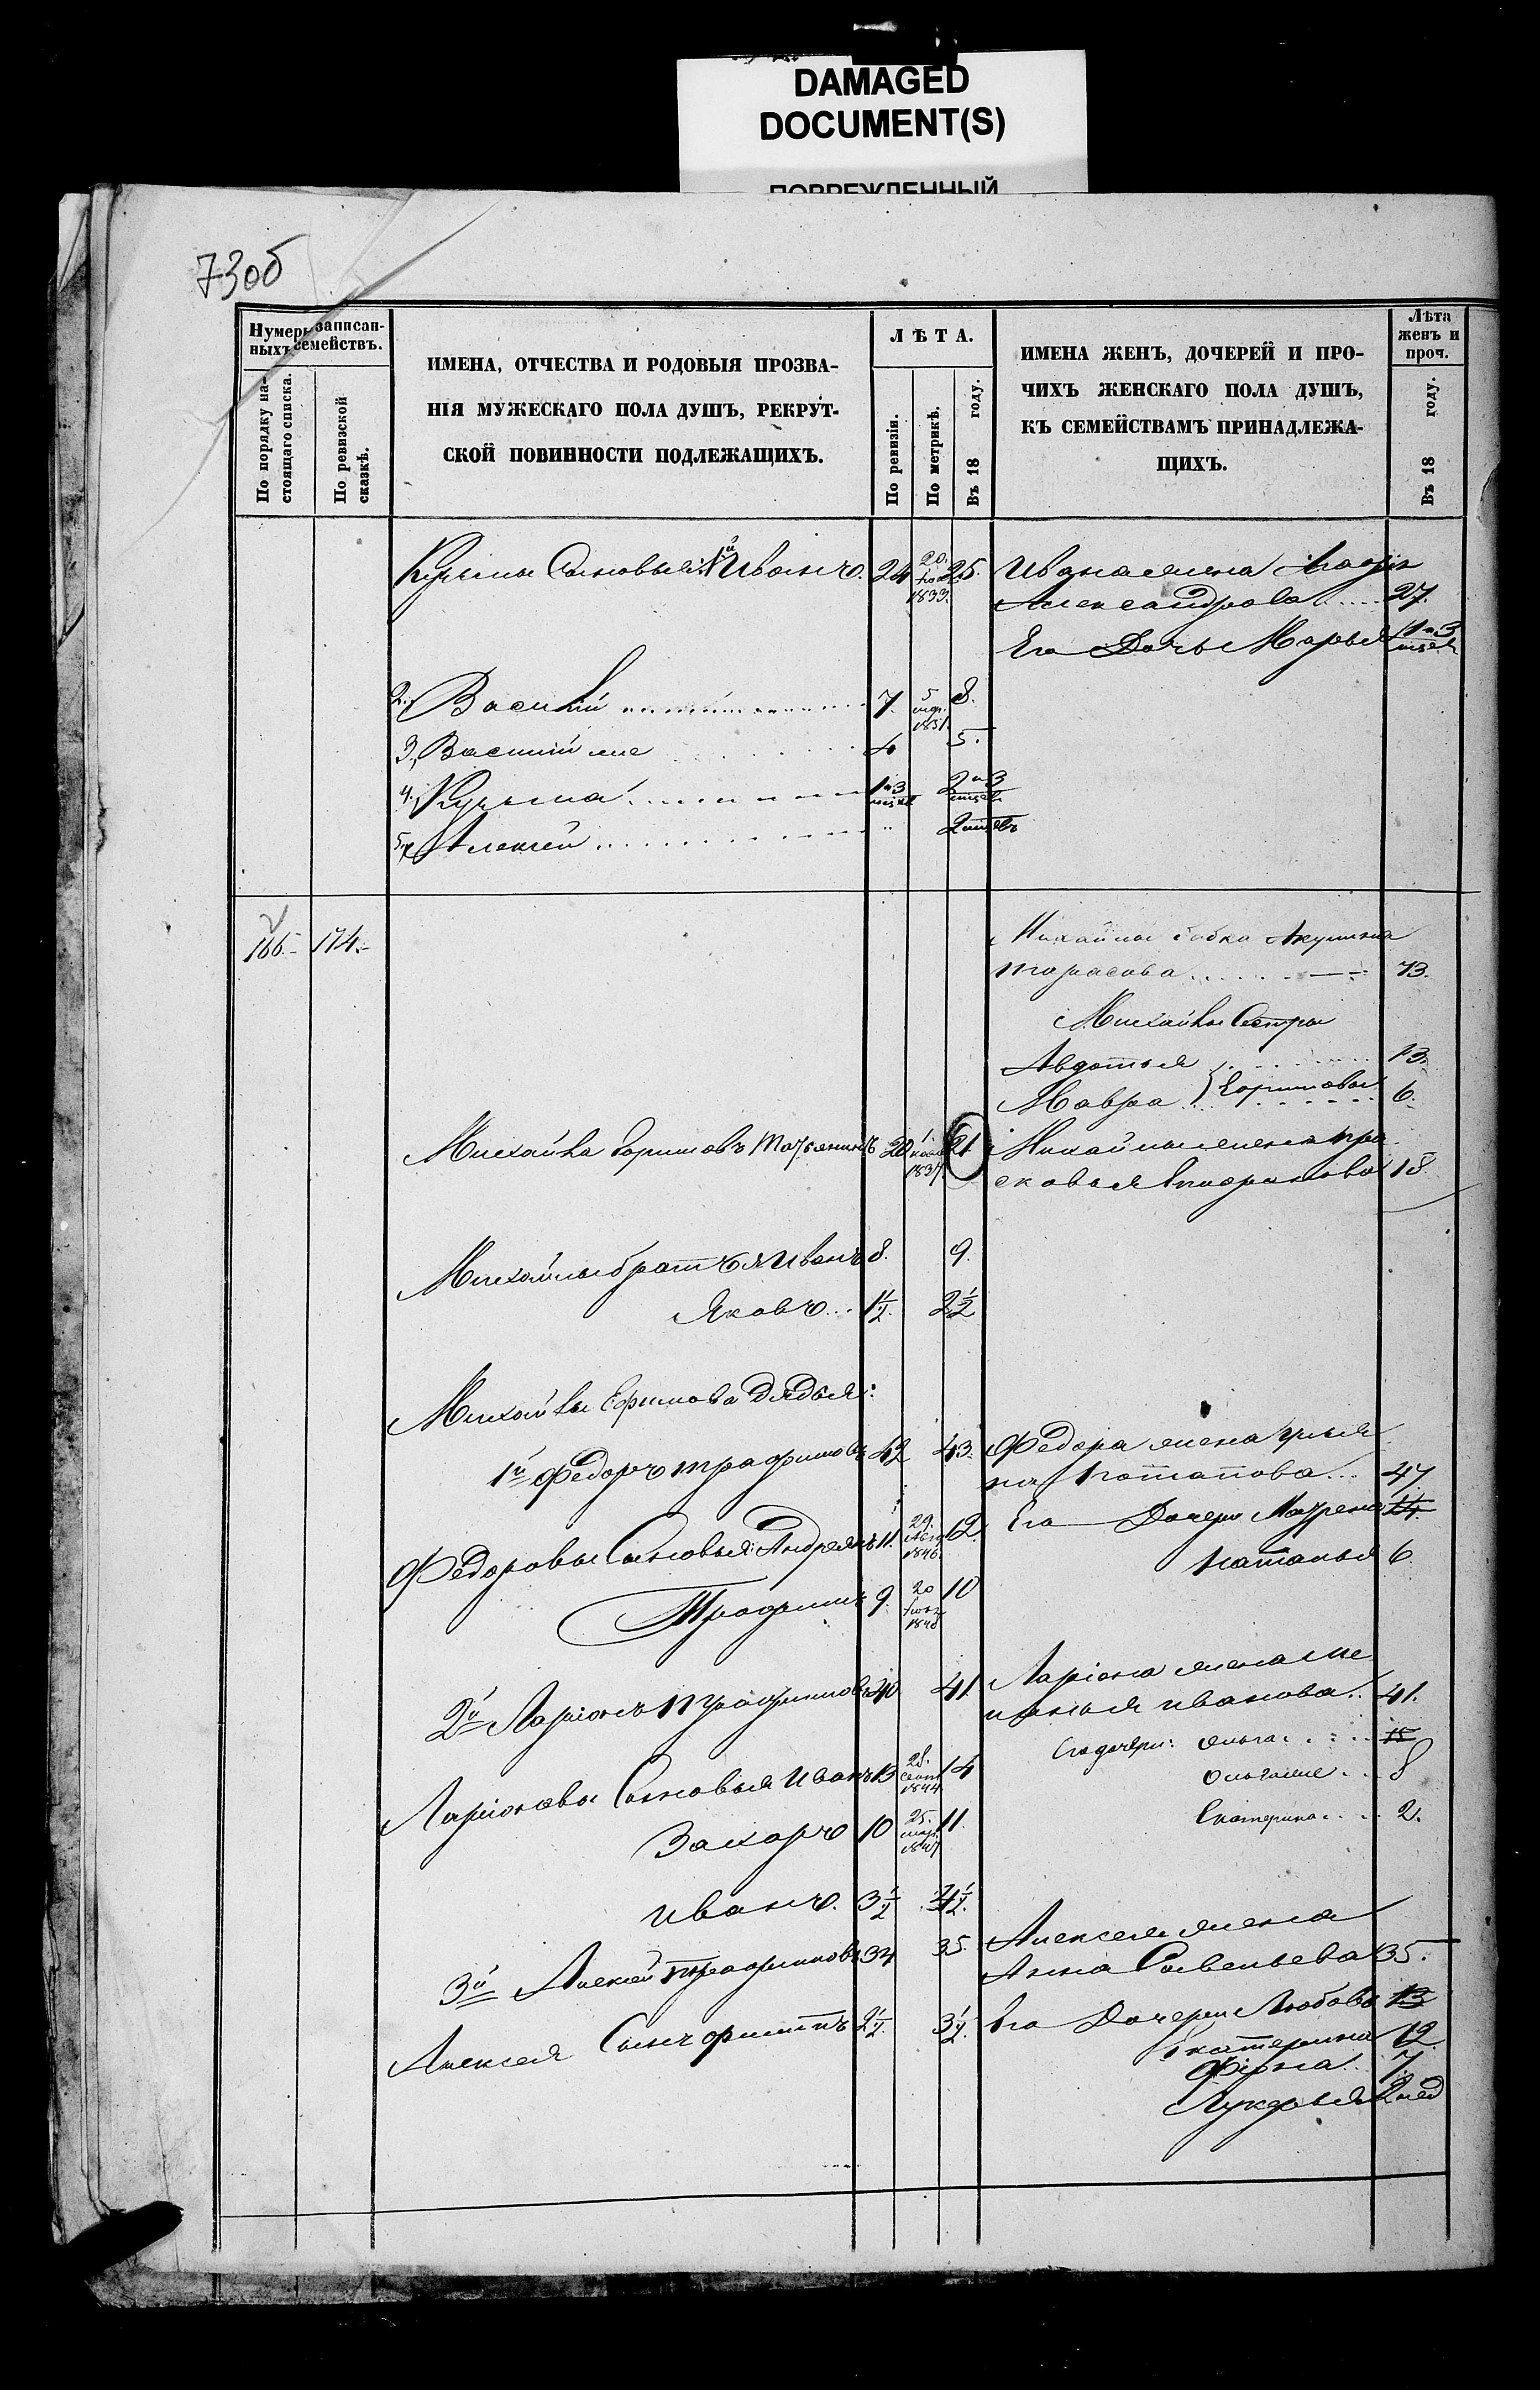 DAMAGED
DOCUMENT(S)
ПОВРЕЖДЕННЫЙ
73об
Нумеры записан-
ныхъ семействъ.
По порядку на-
стоящаго списка.
По ревизской
сказкѣ.
ИМЕНА, ОТЧЕСТВА И РОДОВЫЯ ПРОЗВА-
НІЯ МУЖЕСКАГО ПОЛА ДУШЪ, РЕКРУТ-
СКОЙ ПОВИННОСТИ ПОДЛЕЖАЩИХЪ.
ЛѢТА.
По ревизіи.
По метрикѣ.
Въ 18 году.
ИМЕНА ЖЕНЪ, ДОЧЕРЕЙ И ПРО-
ЧИХЪ ЖЕНСКАГО ПОЛА ДУШЪ,
КЪ СЕМЕЙСТВАМЪ ПРИНАДЛЕЖА-
ЩИХЪ.
Лѣта
женъ и
проч.
Въ 18 году.
Кузьмы Сыновья: 1й Иванъ. 24 20. 1833. 25. Ивана жена
Александрова 27.
Его Дочь Марья 1 и 3 мцев
2. Василій 7. 5 1851. 8.
3. Василий же 4 5.
4. Кузьма 1 и 3 2 и 3
5. Алексей " 2 мцевъ
166. 174. Михайлы бабка Акулина
Тарасова 73.
Михайлы Сестры
Авдотья 13.
Мавра } Ефимовы 6.
Михайла Ефимовъ 20 1 1837. 21 Михайлы жена Пра
сковья 18.
Михайлы братья Иванъ 8. 9.
Яковъ 1½ 2½
Михайлы Ефимова Дядья:
1й Федоръ Трафимовъ 42 43. Федора жена Улья
на Потапова 47
Федоровы Сыновья: Андреянъ 11. 29. 1846. 12. Его Дочери Матрена 14.
Наталья 6.
Трафимъ 9. 20 1848 10
2й Ларіонъ Трафимовъ 40 41. Ларіона жена Ме
ланья Иванова 41.
Ларіоновы Сыновья Иванъ 13 28. Сент 1844. 14 Его дочери: Ольга 15
Ольга же 8
Захаръ 10 25. мар. 1847 11. Екатерина 2.
Иванъ. 3½ 4½.
3й Алексей Трафимовъ 34 35. Алексея жена
Анна Савельева 35.
Алексея Сынъ Филипъ 2½. 3½. Его Дочери Любовь 13
Екатерина 12
Фёкла 7.
Лукерья 2 нед